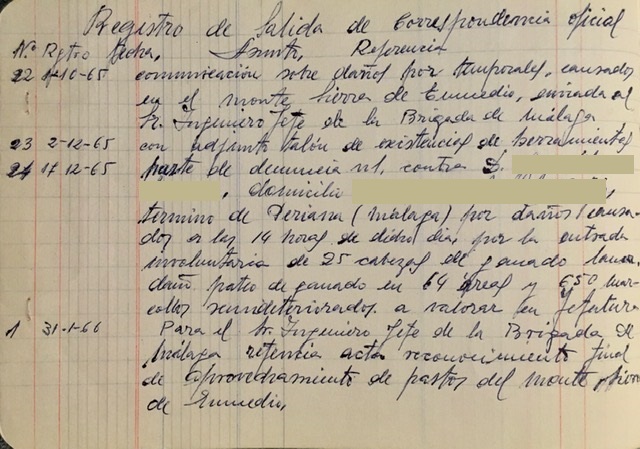 Registro de Salida de Correspondencia oficial
Nº Rgtro fecha, Asunto, Referencia
22 1-10-65 comunicación sobre daños por temporales, causados
en el monte Sierra de Enmedio, enviada al
Sr. Ingeniero Jefe de la Brigada de Málaga
23 2-12-65 con adjunto talón de existencias de herramientas
24 17-12-65 parte de denuncia nº1, contra D.
, domicilio
termino de Periana (Málaga) por daños causa-
dos a las 14 horas de dicho dia, por la entrada
involuntaria de 25 cabezas de ganado lanar,
daño pateo de ganado en 64 areas y 650 mar-
cottos semideteriorados. a valorar en Jefatura
1 31-1-66 Para el Sr. Ingeniero Jefe de la Brigada de
Málaga acta reconocimiento final
de aprovechamiento de pastos del monte Sierra
de Enmedio,